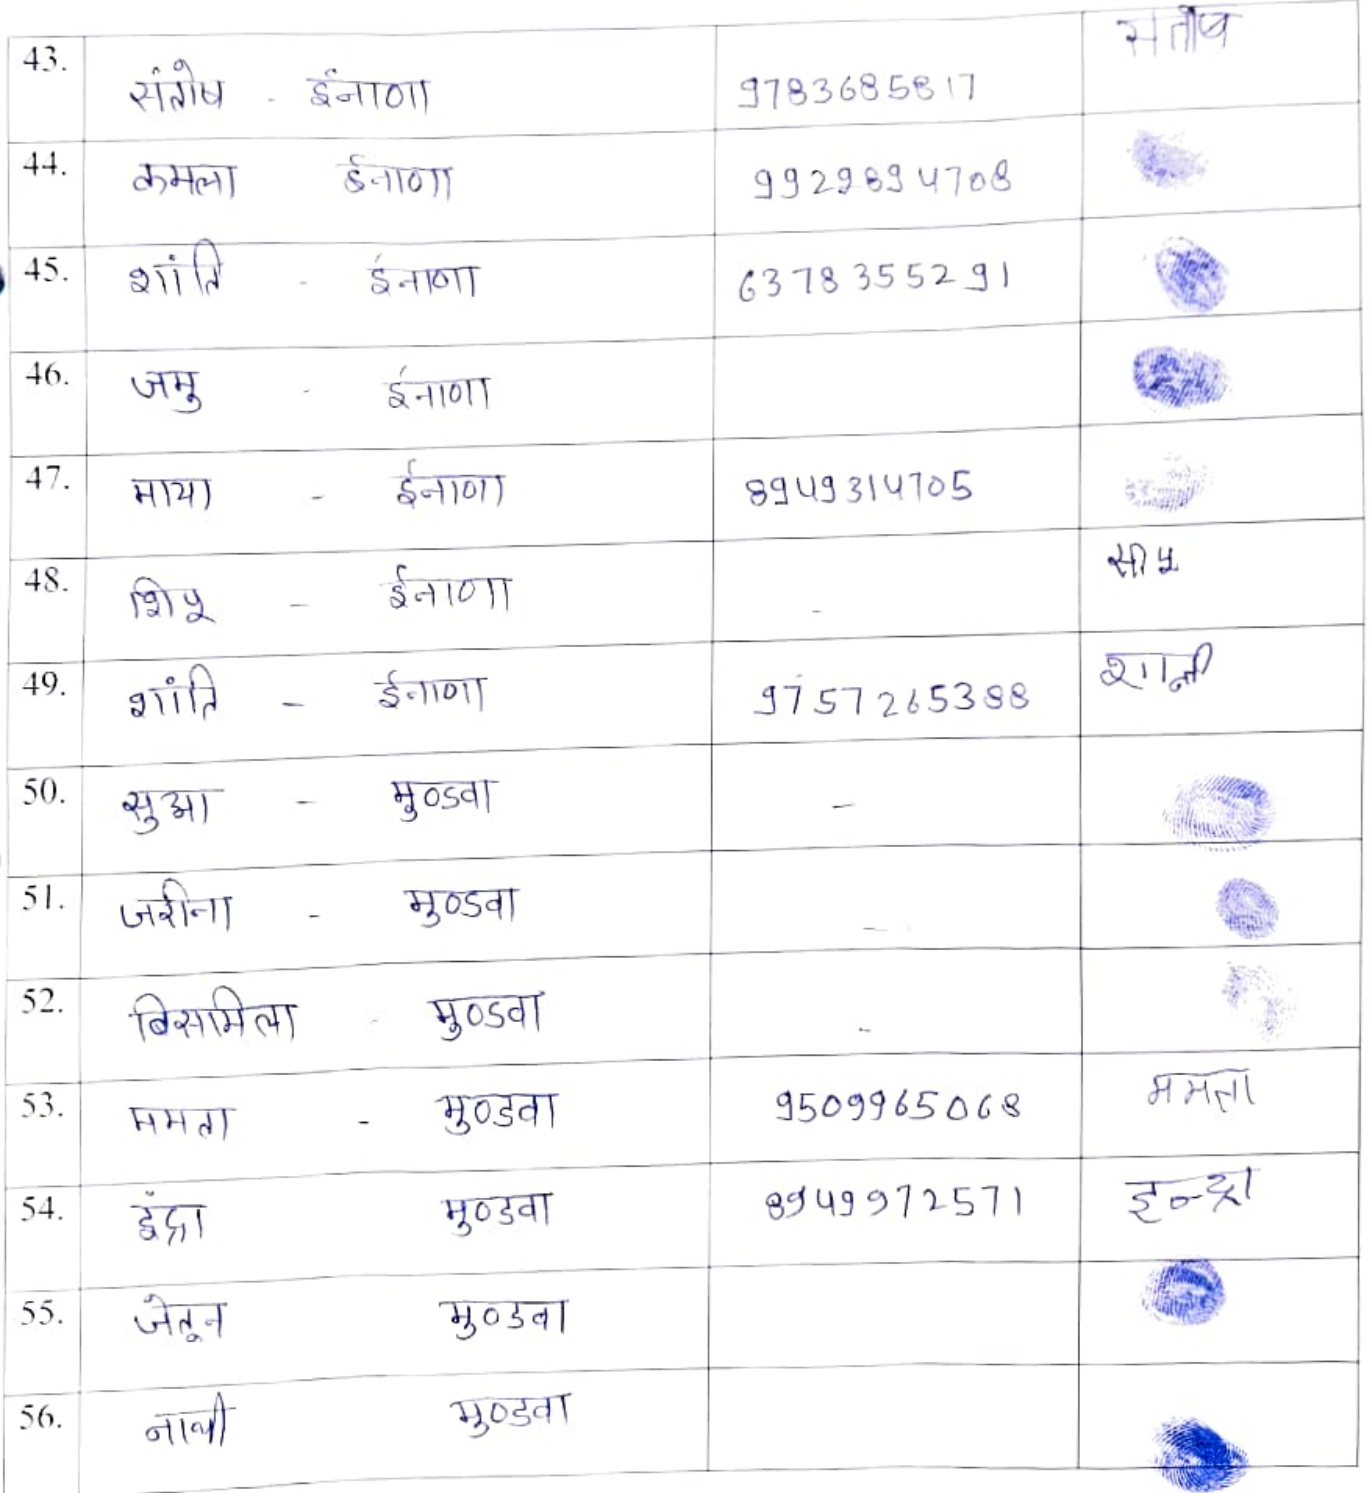 43. संतोष - ईनाणा 9783685817 संतोष
44. कमला ईनाणा 9929894708
45. शांति - ईनाणा 6378355291
46. जमु - ईनाणा
47. माया - ईनाणा 8949314705
48. शिपू - ईनाणा - सीपु
49. शांति - ईनाणा 9757265388 शान्ती
50. सुआ - मुण्डवा -
51. जरीना - मुण्डवा -
52. बिसमिला - मुण्डवा -
53. ममता - मुण्डवा 9509965068 ममता
54. इंद्रा मुण्डवा 8949972571 इन्द्रा
55. जेतून मुण्डवा
56. नाथी मुण्डवा